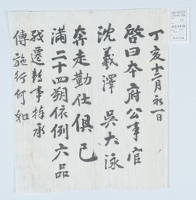 丁亥十二月初一日
啓曰本府公事官
沈義澤 吳大泳
奔走勤仕俱已
滿二十四朔依例六品
遷轉事捧承
傳施行何如